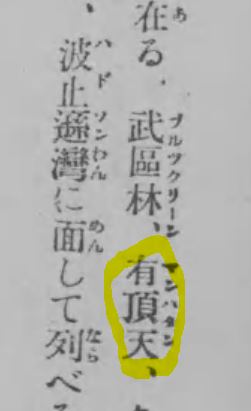 在る。武區林、有頂天、
、波止遜灣に面して列べ